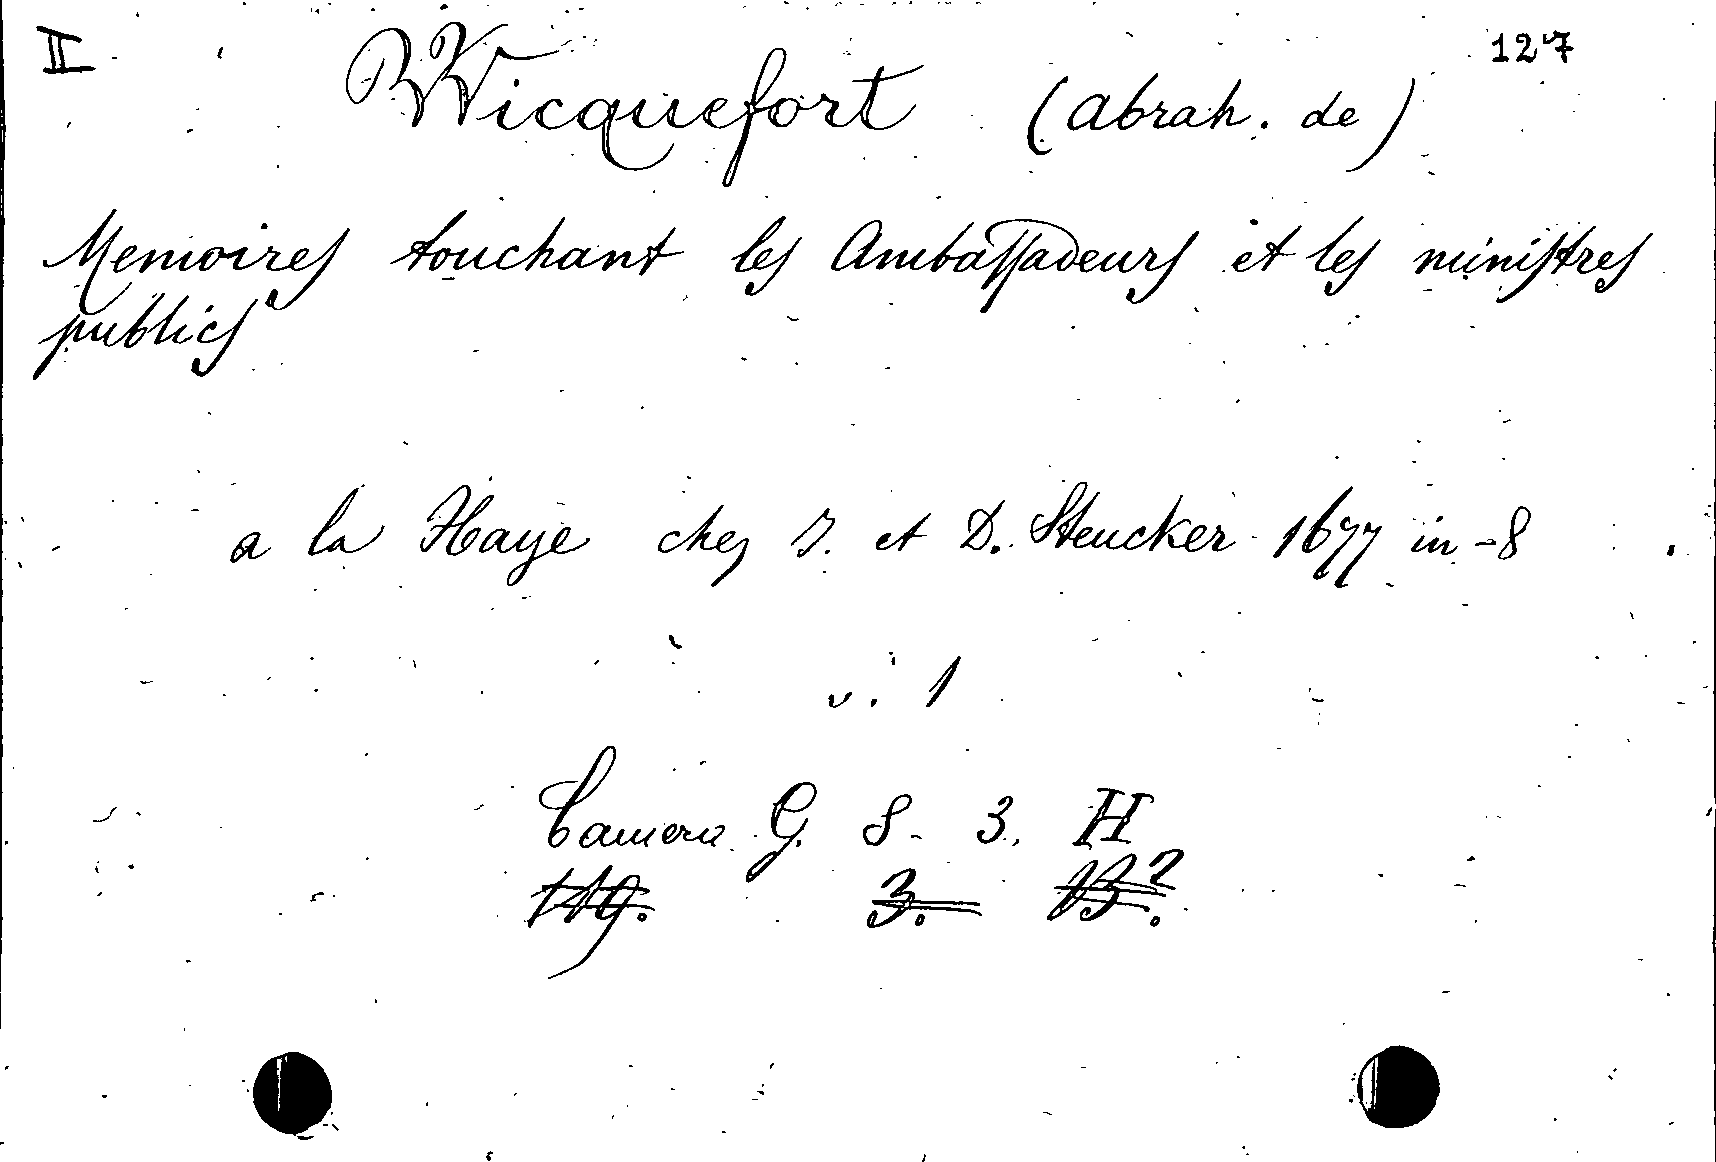 II Wicquefort (Abrah. de) 127
Memoires touchant les Ambassadeurs et les ministres
publics
a la Haye chez J. et D. Steucker 1677 in-8
v. 1
Camera G. 8. 3. H
119. 3. 13?